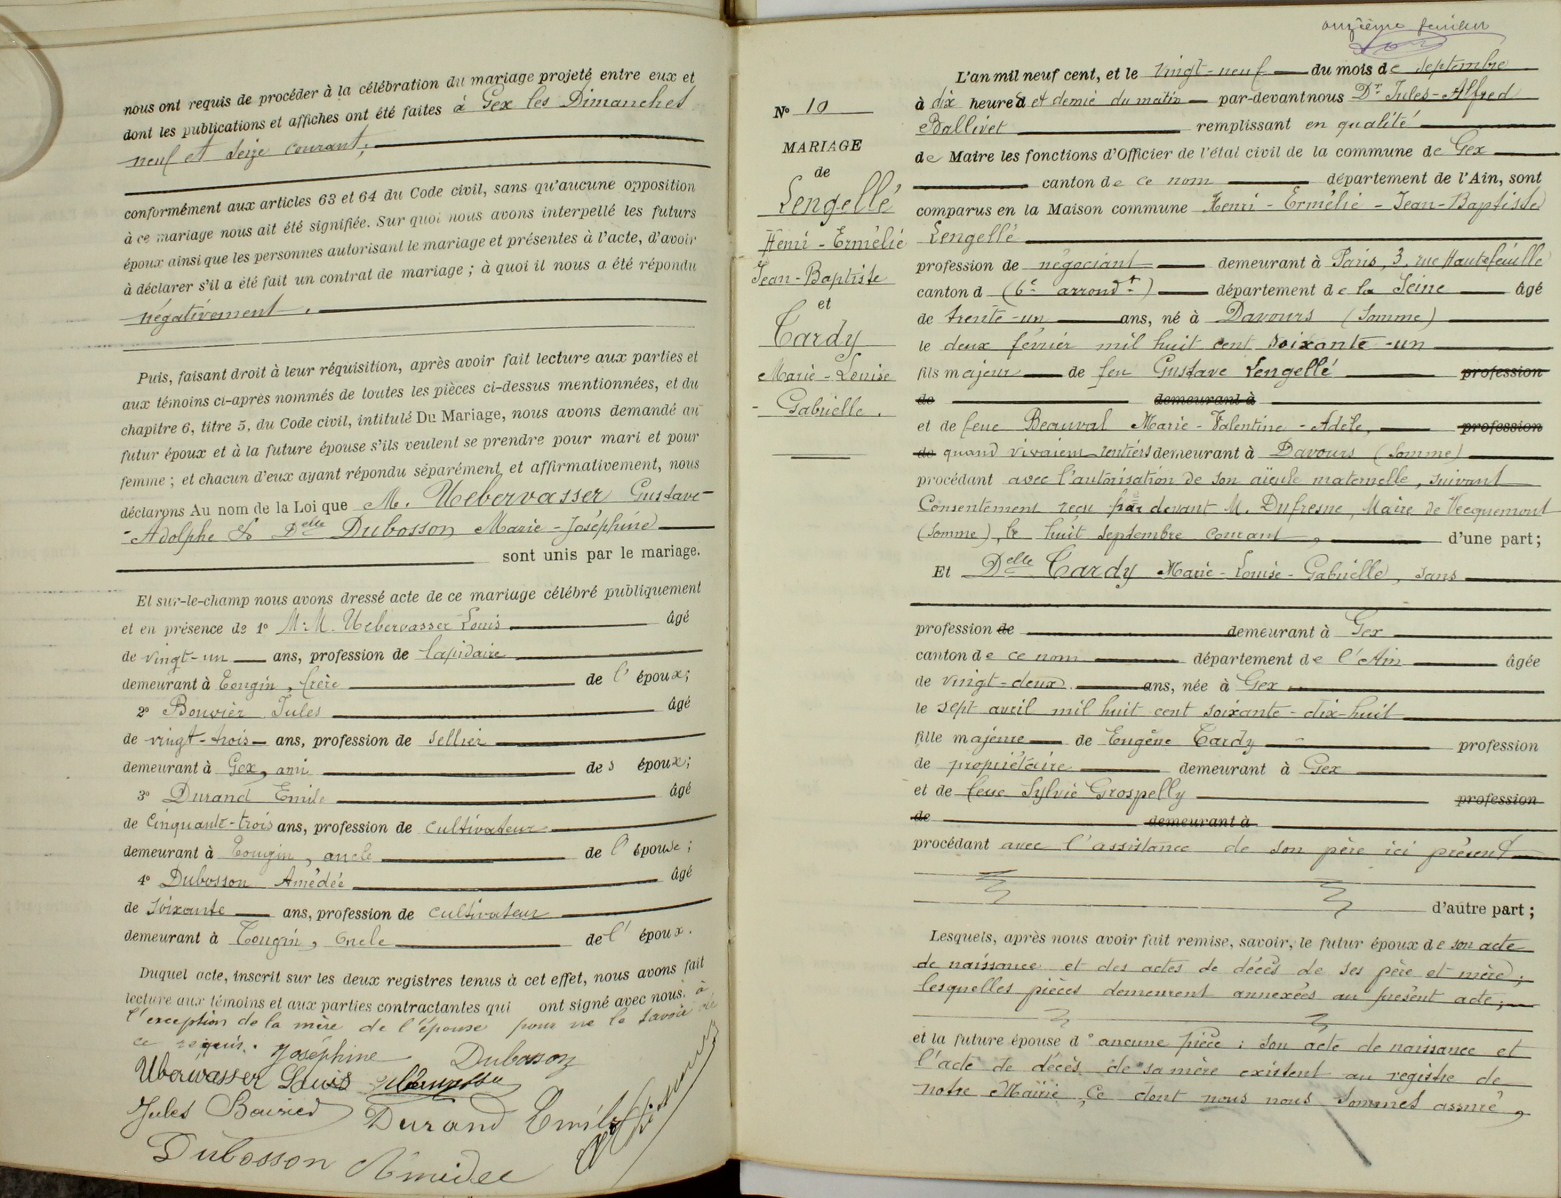 nous ont requis de procéder à la célébration du mariage projeté entre eux et
dont les publications et affiches ont été faites à Gex les Dimanches
neuf et seize courant,
conformément aux articles 63 et 64 du Code civil, sans qu'aucune opposition
à ce mariage nous ait été signifiée. Sur quoi nous avons interpellé les futurs
époux ainsi que les personnes autorisant le mariage et présentes à l'acte, d'avoir
à déclarer s'il a été fait un contrat de mariage ; à quoi il nous a été répondu
négativement.
Puis, faisant droit à leur réquisition, après avoir fait lecture aux parties et
aux témoins ci-après nommés de toutes les pièces ci-dessus mentionnées, et du
chapitre 6, titre 5, du Code civil, intitulé Du Mariage, nous avons demandé au
futur époux et à la future épouse s'ils veulent se prendre pour mari et pour
femme ; et chacun d'eux ayant répondu séparément et affirmativement, nous
déclarons Au nom de la Loi que M. Uebervasser Gustave-
-Adolphe & Delle Dubosson Marie-Joséphine
sont unis par le mariage.
Et sur-le-champ nous avons dressé acte de ce mariage célébré publiquement
et en présence de 1º M.M. Uebervasser Louis âgé
de vingt-un ans, profession de lapidaire
demeurant à Tougin, frère de l'époux;
2º Bouvier Jules âgé
de vingt-trois ans, profession de sellier
demeurant à Gex, ami des époux;
3º Durand Emile âgé
de cinquante-trois ans, profession de cultivateur
demeurant à Tougin, oncle de l'épouse;
4º Dubosson Amédée âgé
de soixante ans, profession de cultivateur
demeurant à Tougin, oncle de l'époux.
Duquel acte, inscrit sur les deux registres tenus à cet effet, nous avons fait
lecture aux témoins et aux parties contractantes qui ont signé avec nous, à
l'exception de la mère de l'épouse pour ne le savoir de
ce requis. Joséphine Dubosson
Uberwasser Louis
Jules Bouvier Durand Emile
Dubosson Amédée
onzième feuillet
Nº 10
MARIAGE
de
Lengellé
Henri-Ermélie
Jean-Baptiste
et
Tardy
Marie-Louise
-Gabrielle.
L'an mil neuf cent, et le vingt-neuf du mois de septembre
à dix heures et demie du matin par-devant nous Dr Jules-Alfred
Ballivet remplissant en qualité
de Maire les fonctions d'Officier de l'état civil de la commune de Gex
canton de ce nom département de l'Ain, sont
comparus en la Maison commune Henri-Ermélie-Jean-Baptiste
Lengellé
profession de négociant demeurant à Paris, 3, rue Hautefeuille
canton d (6e arrondt) département de la Seine âgé
de trente-un ans, né à Davours (Somme)
le deux février mil huit cent soixante-un
fils majeur de feu Gustave Lengellé profession
de demeurant à
et de feue Beauval Marie-Valentine-Adèle, profession
de quand vivaient rentiers demeurant à Davours (Somme)
procédant avec l'autorisation de son aïeule maternelle, suivant
Consentement reçu par devant M. Dufresne, Maire de Vecquemont
(Somme), le huit septembre courant, d'une part;
Et Delle Tardy Marie-Louise-Gabrielle, sans
profession de demeurant à Gex
canton de ce nom département de l'Ain âgée
de vingt-deux ans, née à Gex
le sept avril mil huit cent soixante-dix-huit
fille majeure de Eugène Tardy profession
de propriétaire demeurant à Gex
et de feue Sylvie Grospelly profession
de demeurant à
procédant avec l'assistance de son père ici présent
d'autre part;
Lesquels, après nous avoir fait remise, savoir, le futur époux de son acte
de naissance et des actes de décès de ses père et mère;
lesquelles pièces demeurent annexées au présent acte;
et la future épouse d'aucune pièce: son acte de naissance et
l'acte de décès de sa mère existent au registre de
notre Mairie, ce dont nous nous sommes assuré,